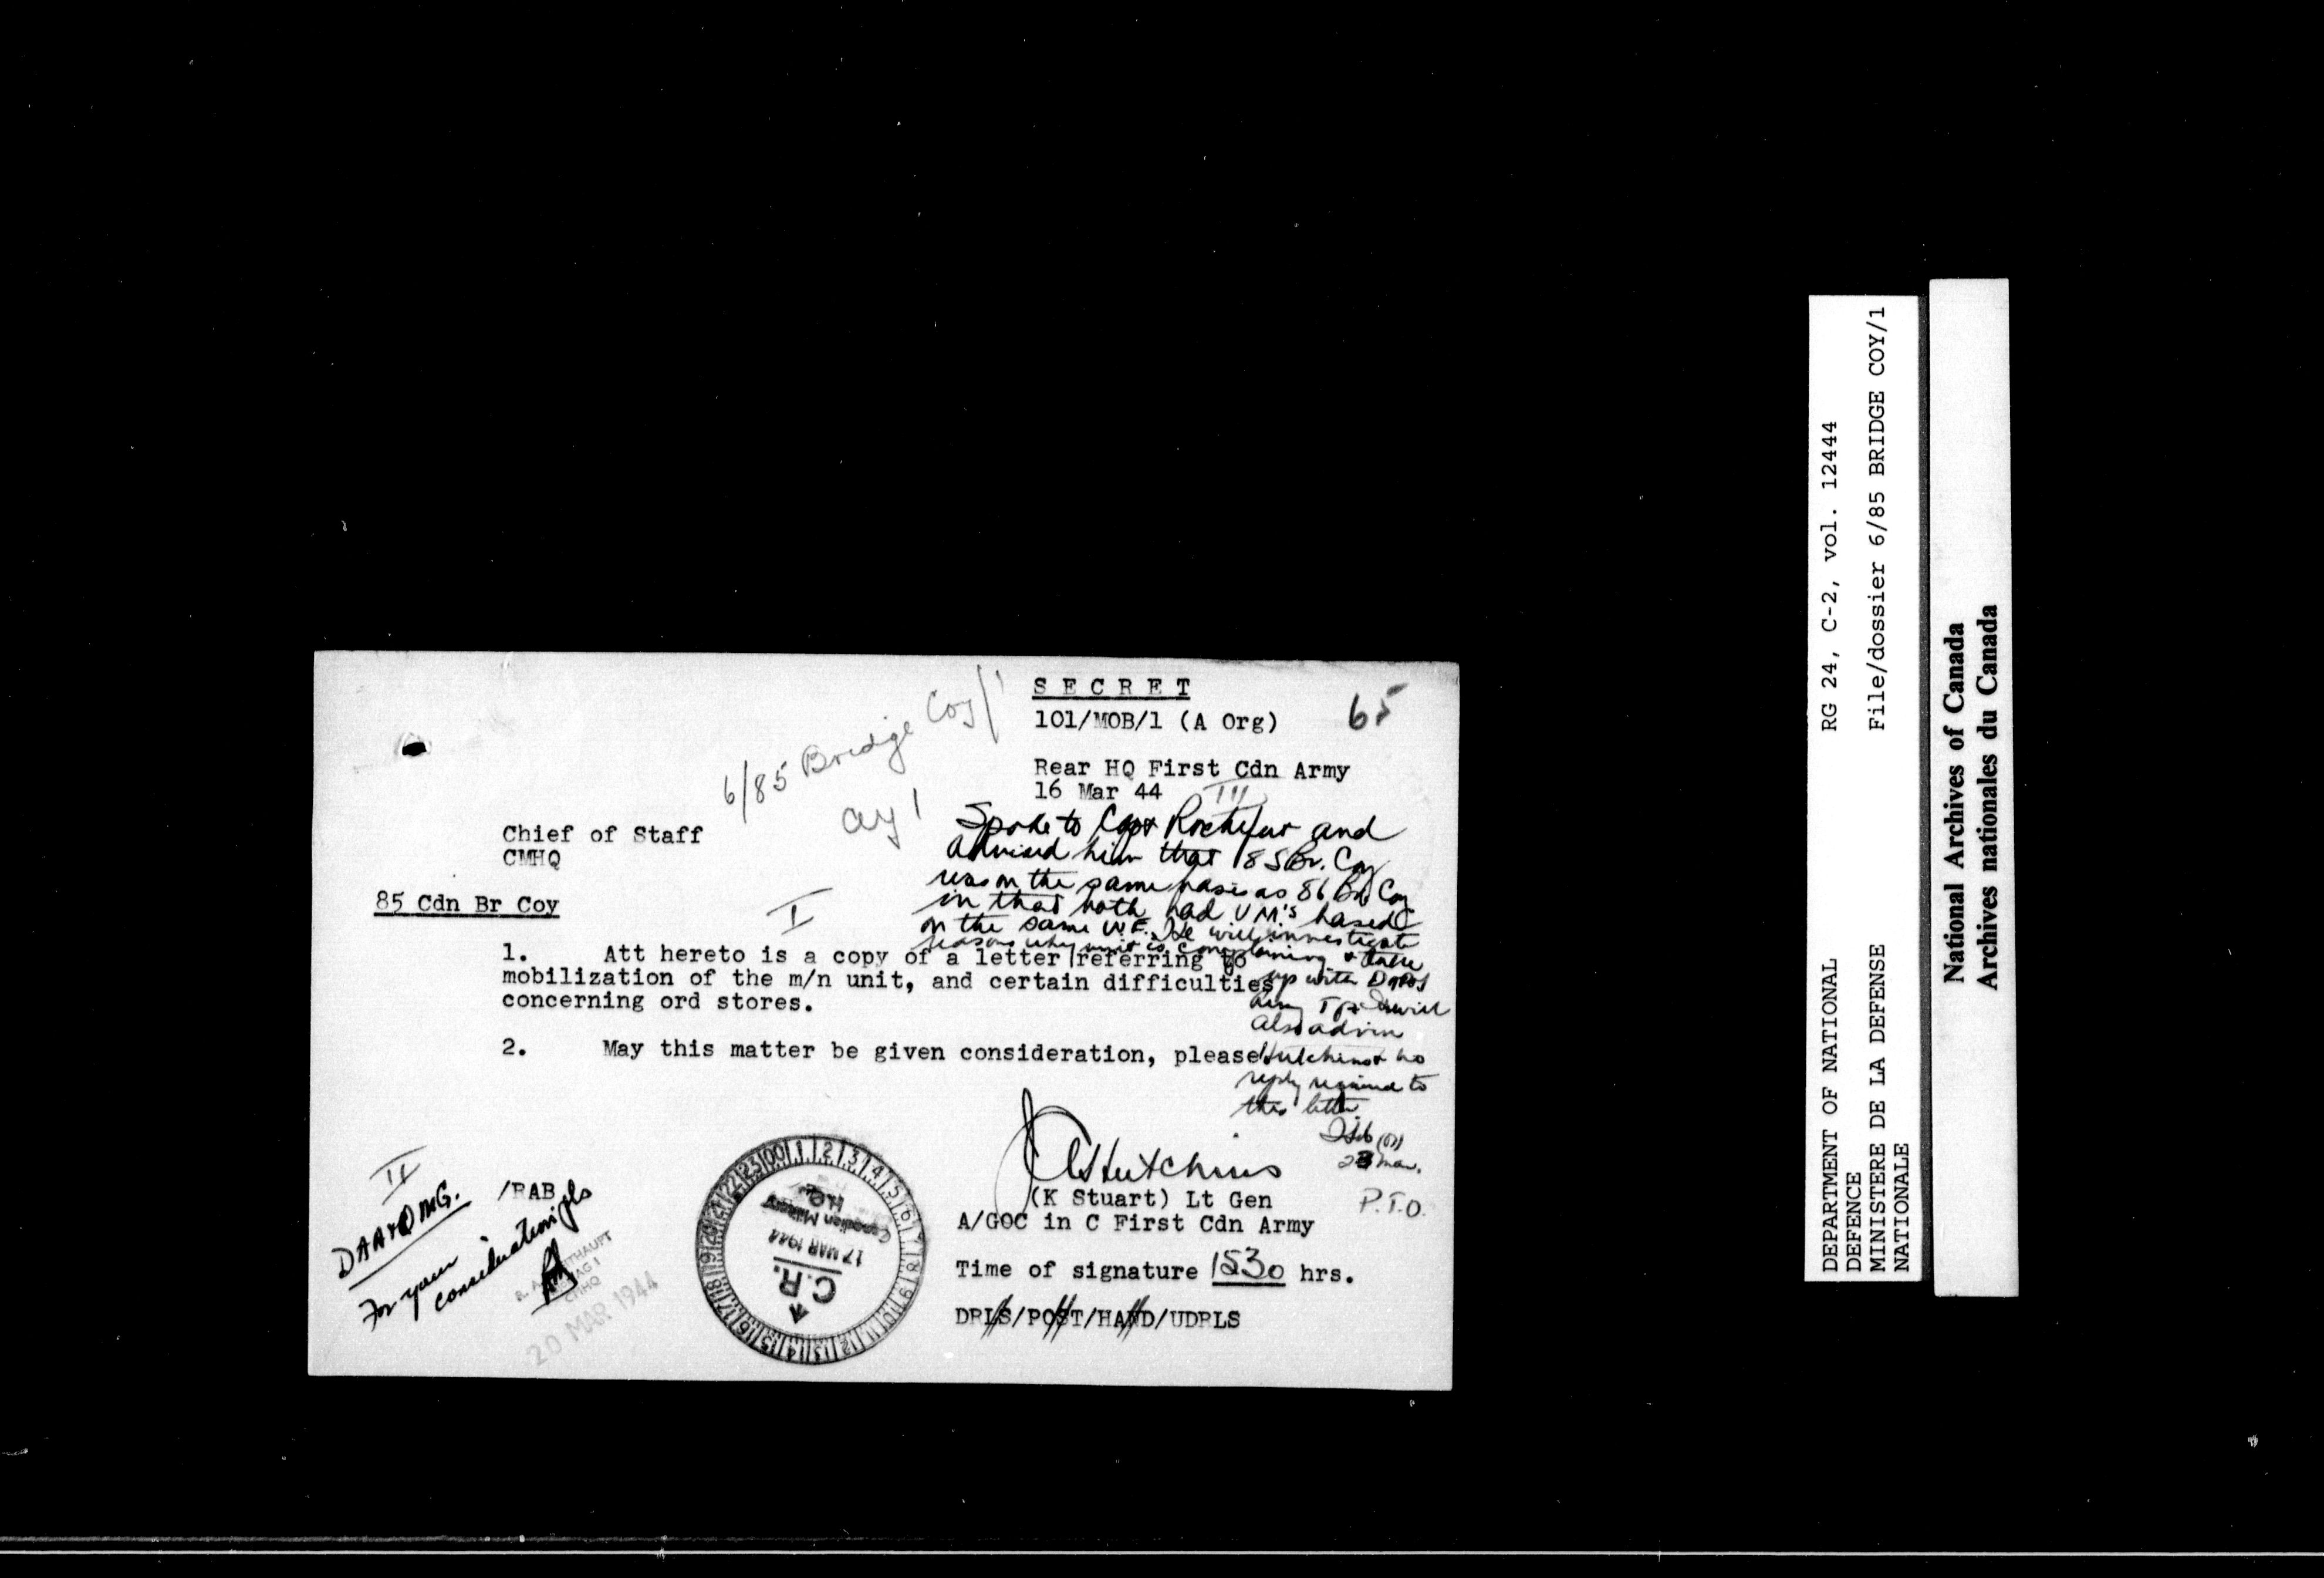 S E C R E T
101/MOB/1 (A Org)
65
6/85 Bridge Coy/1
Rear HQ First Cdn Army
16 Mar 44
III
Chief of Staff
CMHQ
Spoke to Capt and
advised him that 85 Br. Coy
was on the same basis as 86 Br. Coy
in that both had V M's based
on the same W.E. He will investigate
reasons why unit is complaining & take
up with
will
also advise
Hutchins no
reply required to
this letter
23 Mar.
P.T.O.
85 Cdn Br Coy
I
1. Att hereto is a copy of a letter referring to
mobilization of the m/n unit, and certain difficulties
concerning ord stores.
2. May this matter be given consideration, please
Hutchins
(K Stuart) Lt Gen
A/GOC in C First Cdn Army
Time of signature 1530 hrs.
DRLS/POST/HAND/UDRLS
/RAB
II
DAA&QMG.
For your
consideration pls
CMHQ
20 MAR 1944
C.R.
17 MAR 1944
Canadian Military
H.Q.
RG 24, C-2, vol. 12444
File/dossier 6/85 BRIDGE COY/1
DEPARTMENT OF NATIONAL
DEFENCE
MINISTERE DE LA DEFENSE
NATIONALE
National Archives of Canada
Archives nationales du Canada